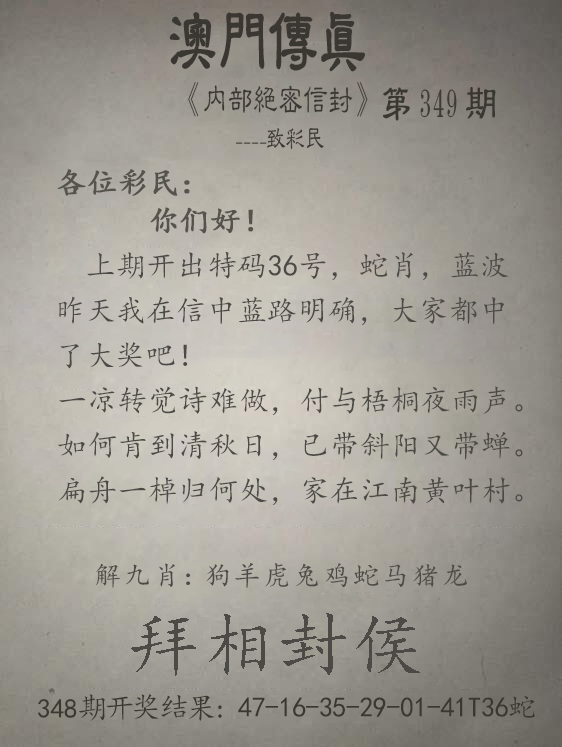 澳門傳眞
《内部絕密信封》第349期
----致彩民
各位彩民：
你们好！
上期开出特码36号，蛇肖，蓝波
昨天我在信中蓝路明确，大家都中
了大奖吧！
一凉转觉诗难做，付与梧桐夜雨声。
如何肯到清秋日，已带斜阳又带蝉。
扁舟一棹归何处，家在江南黄叶村。
解九肖：狗羊虎兔鸡蛇马猪龙
拜相封侯
348期开奖结果：47-16-35-29-01-41T36蛇